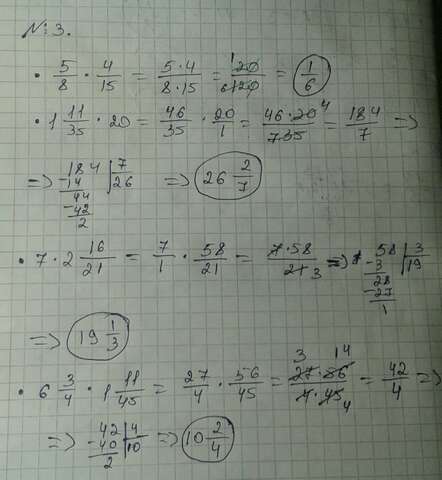 №3.
• 5/8 · 4/15 = 5·4/8·15 = 1 20/6 120 = 1/6
• 1 11/35 · 20 = 46/35 · 20/1 = 46·20 4/7 35 = 184/7 =>
=> 184 | 7
-14 | 26
44
-42
2
=> 26 2/7
• 7 · 2 16/21 = 7/1 · 58/21 = 7·58/21 3 => 58 | 3
-3 | 19
28
-27
1
=> 19 1/3
• 6 3/4 · 1 11/45 = 27/4 · 56/45 = 3 14 27·56/4·45 4 = 42/4 =>
=> 42 | 4
-40 | 10
2
=> 10 2/4